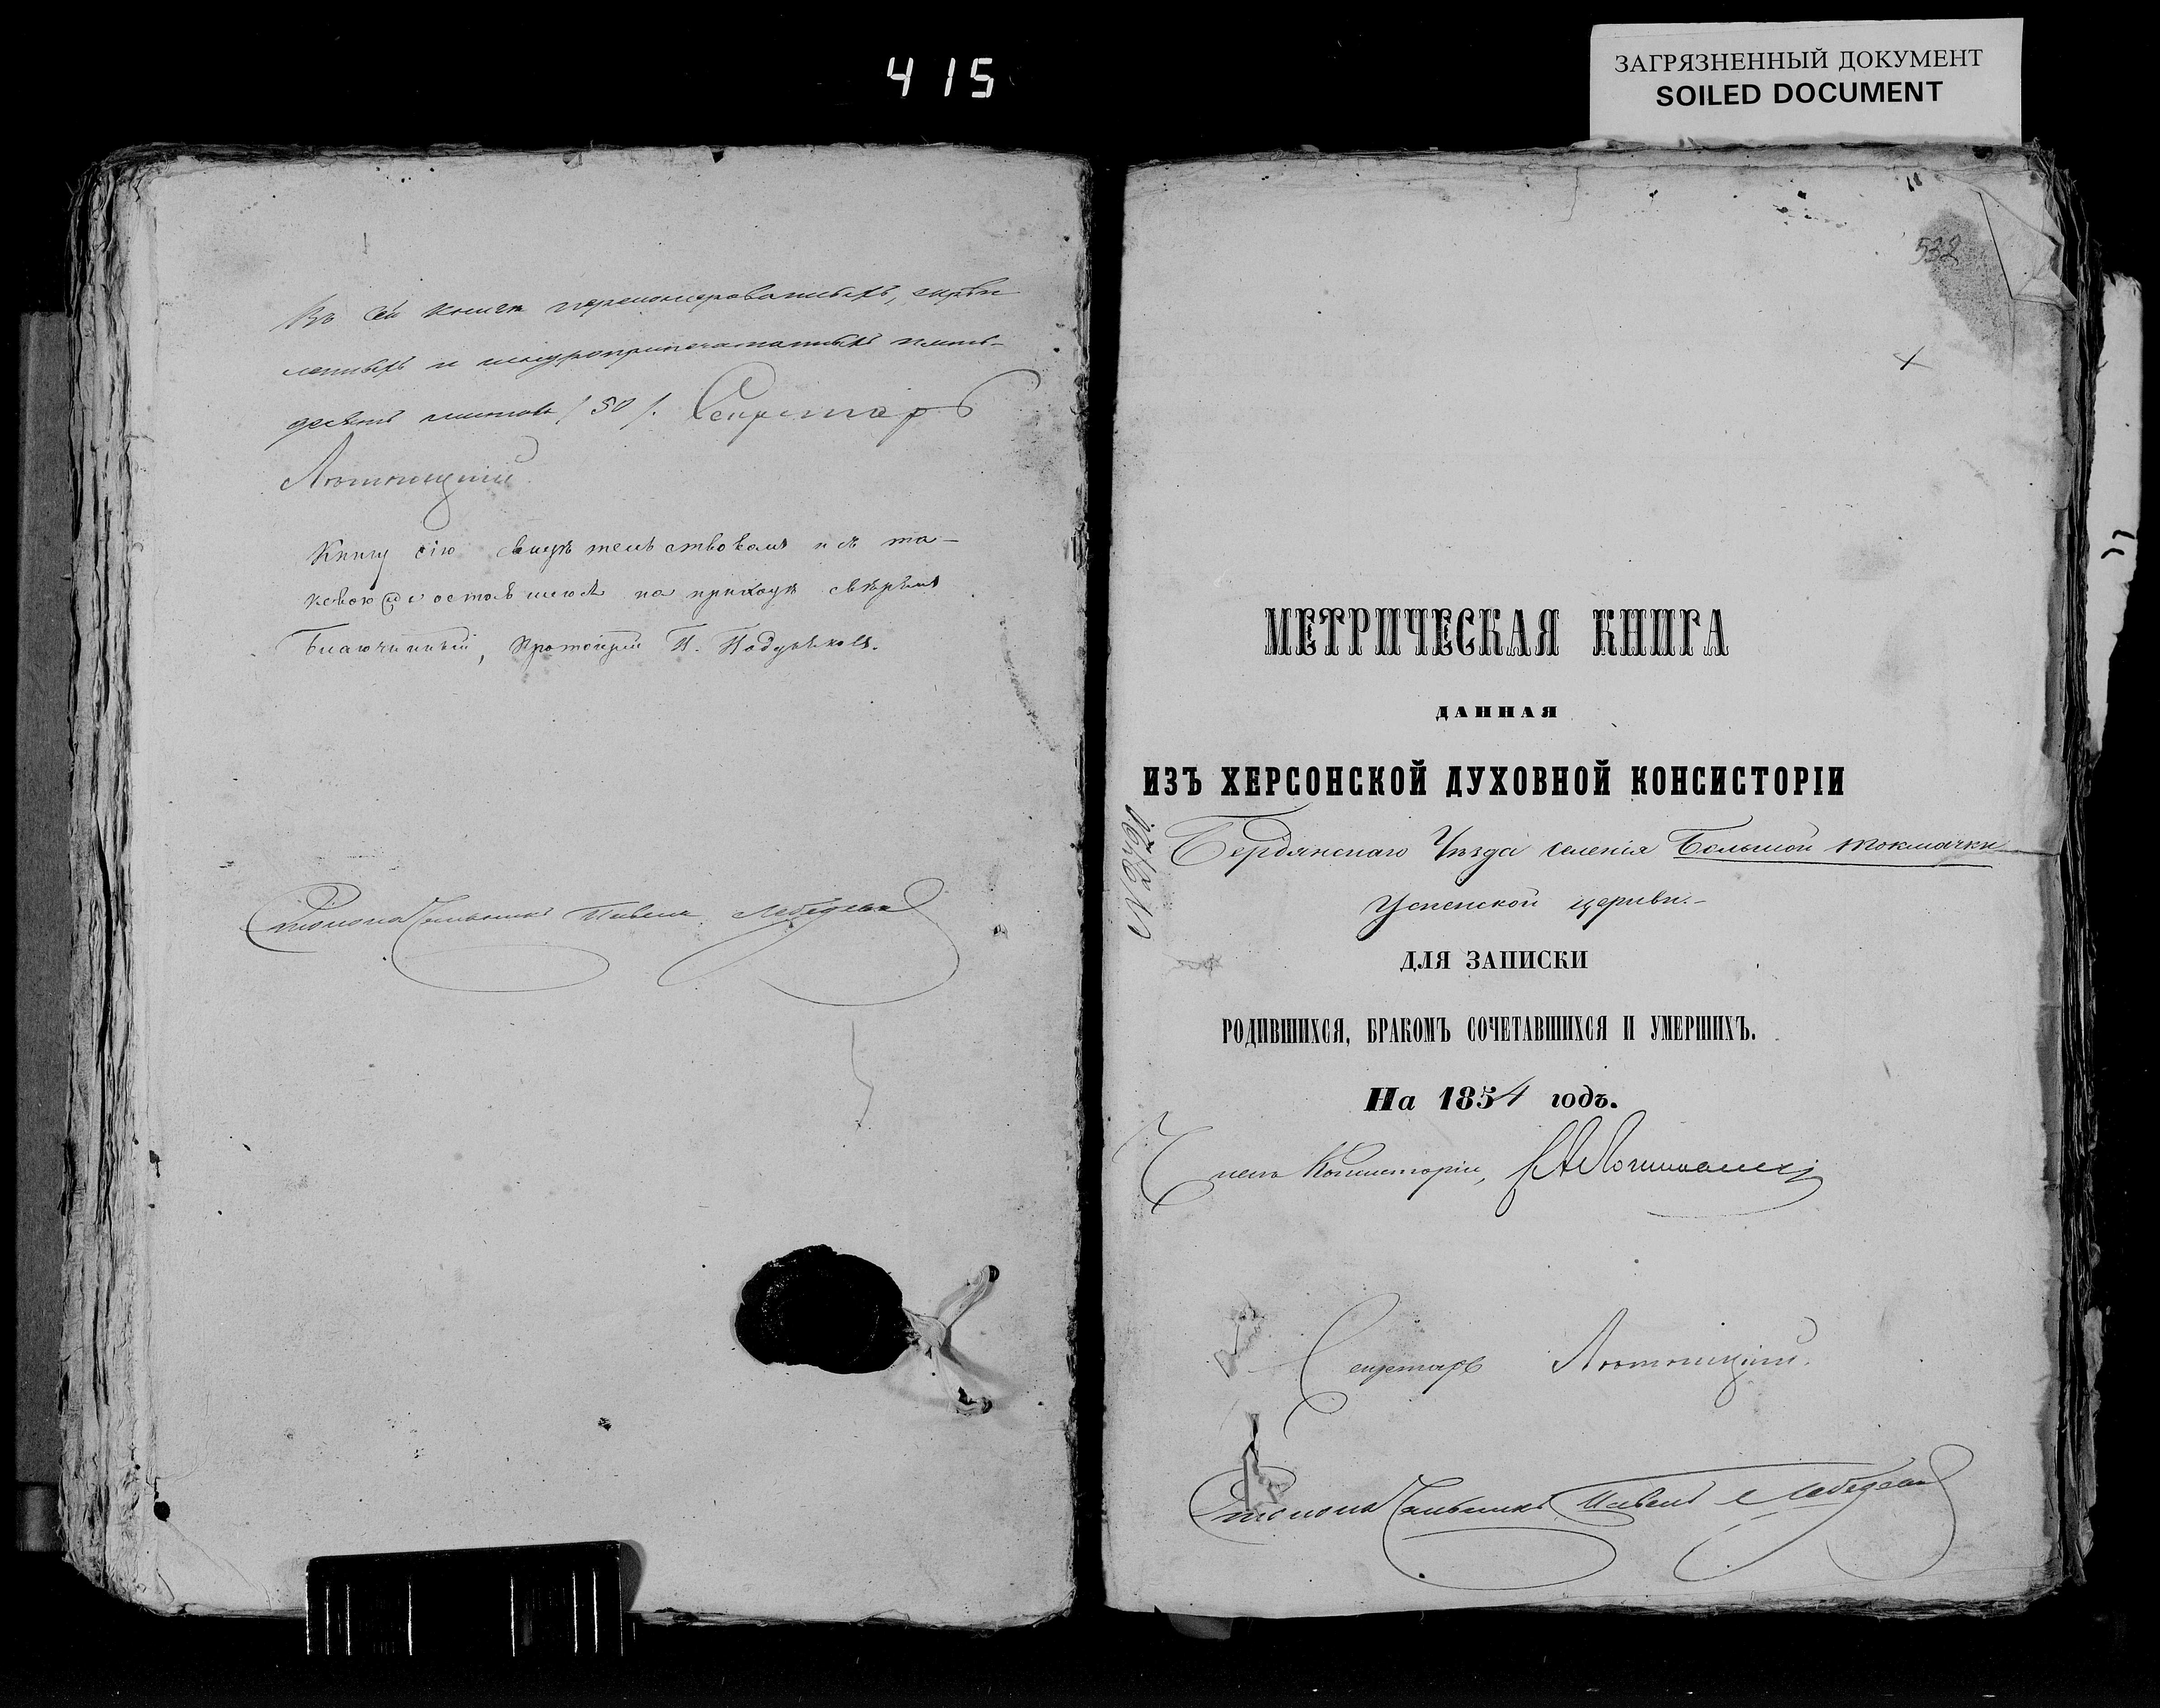 415
ЗАГРЯЗНЕННЫЙ ДОКУМЕНТ
SOILED DOCUMENT
Въ сей книгѣ перенумерованныхъ, скрѣп
ленныхъ и шнуроприпечатанныхъ пять-
десятъ листовъ /50/. Секретарь
Книгу сію свидѣтельствовалъ и съ та-
ковою оставшеюся на приходѣ свѣрялъ
Благочинный, Протоіерей П.
Столоначальникъ Павелъ Лебедевъ
532
МЕТРИЧЕСКАЯ КНИГА
ДАННАЯ
ИЗЪ ХЕРСОНСКОЙ ДУХОВНОЙ КОНСИСТОРІИ
Бердянскаго Уѣзда селенія Большой Токмачки
Успенской церкви.-
ДЛЯ ЗАПИСКИ
РОДИВШИХСЯ, БРАКОМЪ СОЧЕТАВШИХСЯ И УМЕРШИХЪ.
На 1854 годъ.
Членъ Консисторіи,
Секретарь
Столоначальникъ Павелъ Лебедевъ